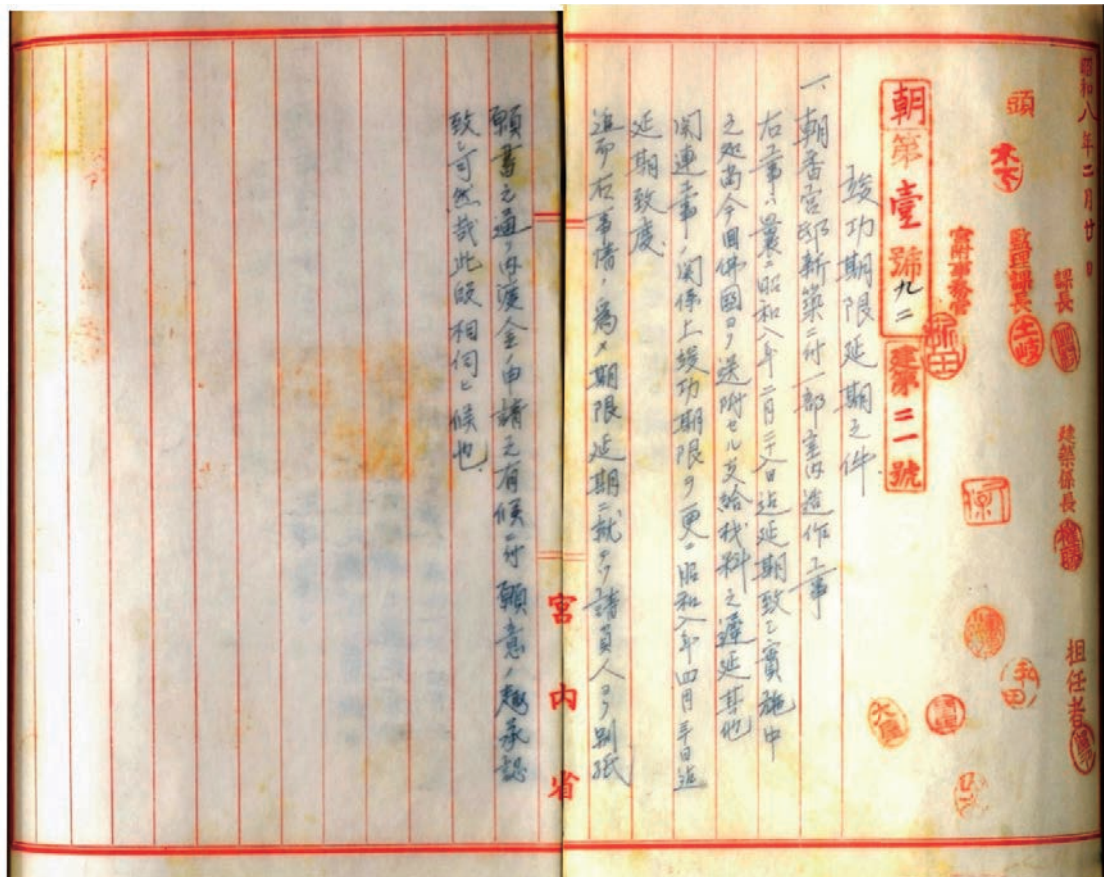 昭和八年二月廿日
課長
建築係長
担任者
頭
木下
監理課長
土岐
宮附事務官
和田
朝第壹號九ニ
建第二一號
竣功期限延期之件
一、朝香宮邸新築ニ付一部室内造作工事
右工事ハ曩ニ昭和八年二月二十八日迠延期致シ實施中
之処尚今回佛國ヨリ送附セル支給材料之遲延其他
関連工事ノ関係上竣功期限ヲ更ニ昭和八年四月三十日迠
延期致度
追而右事情ノ為メ期限延期ニ就テハ請負人ヨリ別紙
願書之通リ内渡金ノ申請之有候ニ付願意ノ趣承認
致シ可然哉此段相伺ヒ候也
宮内省